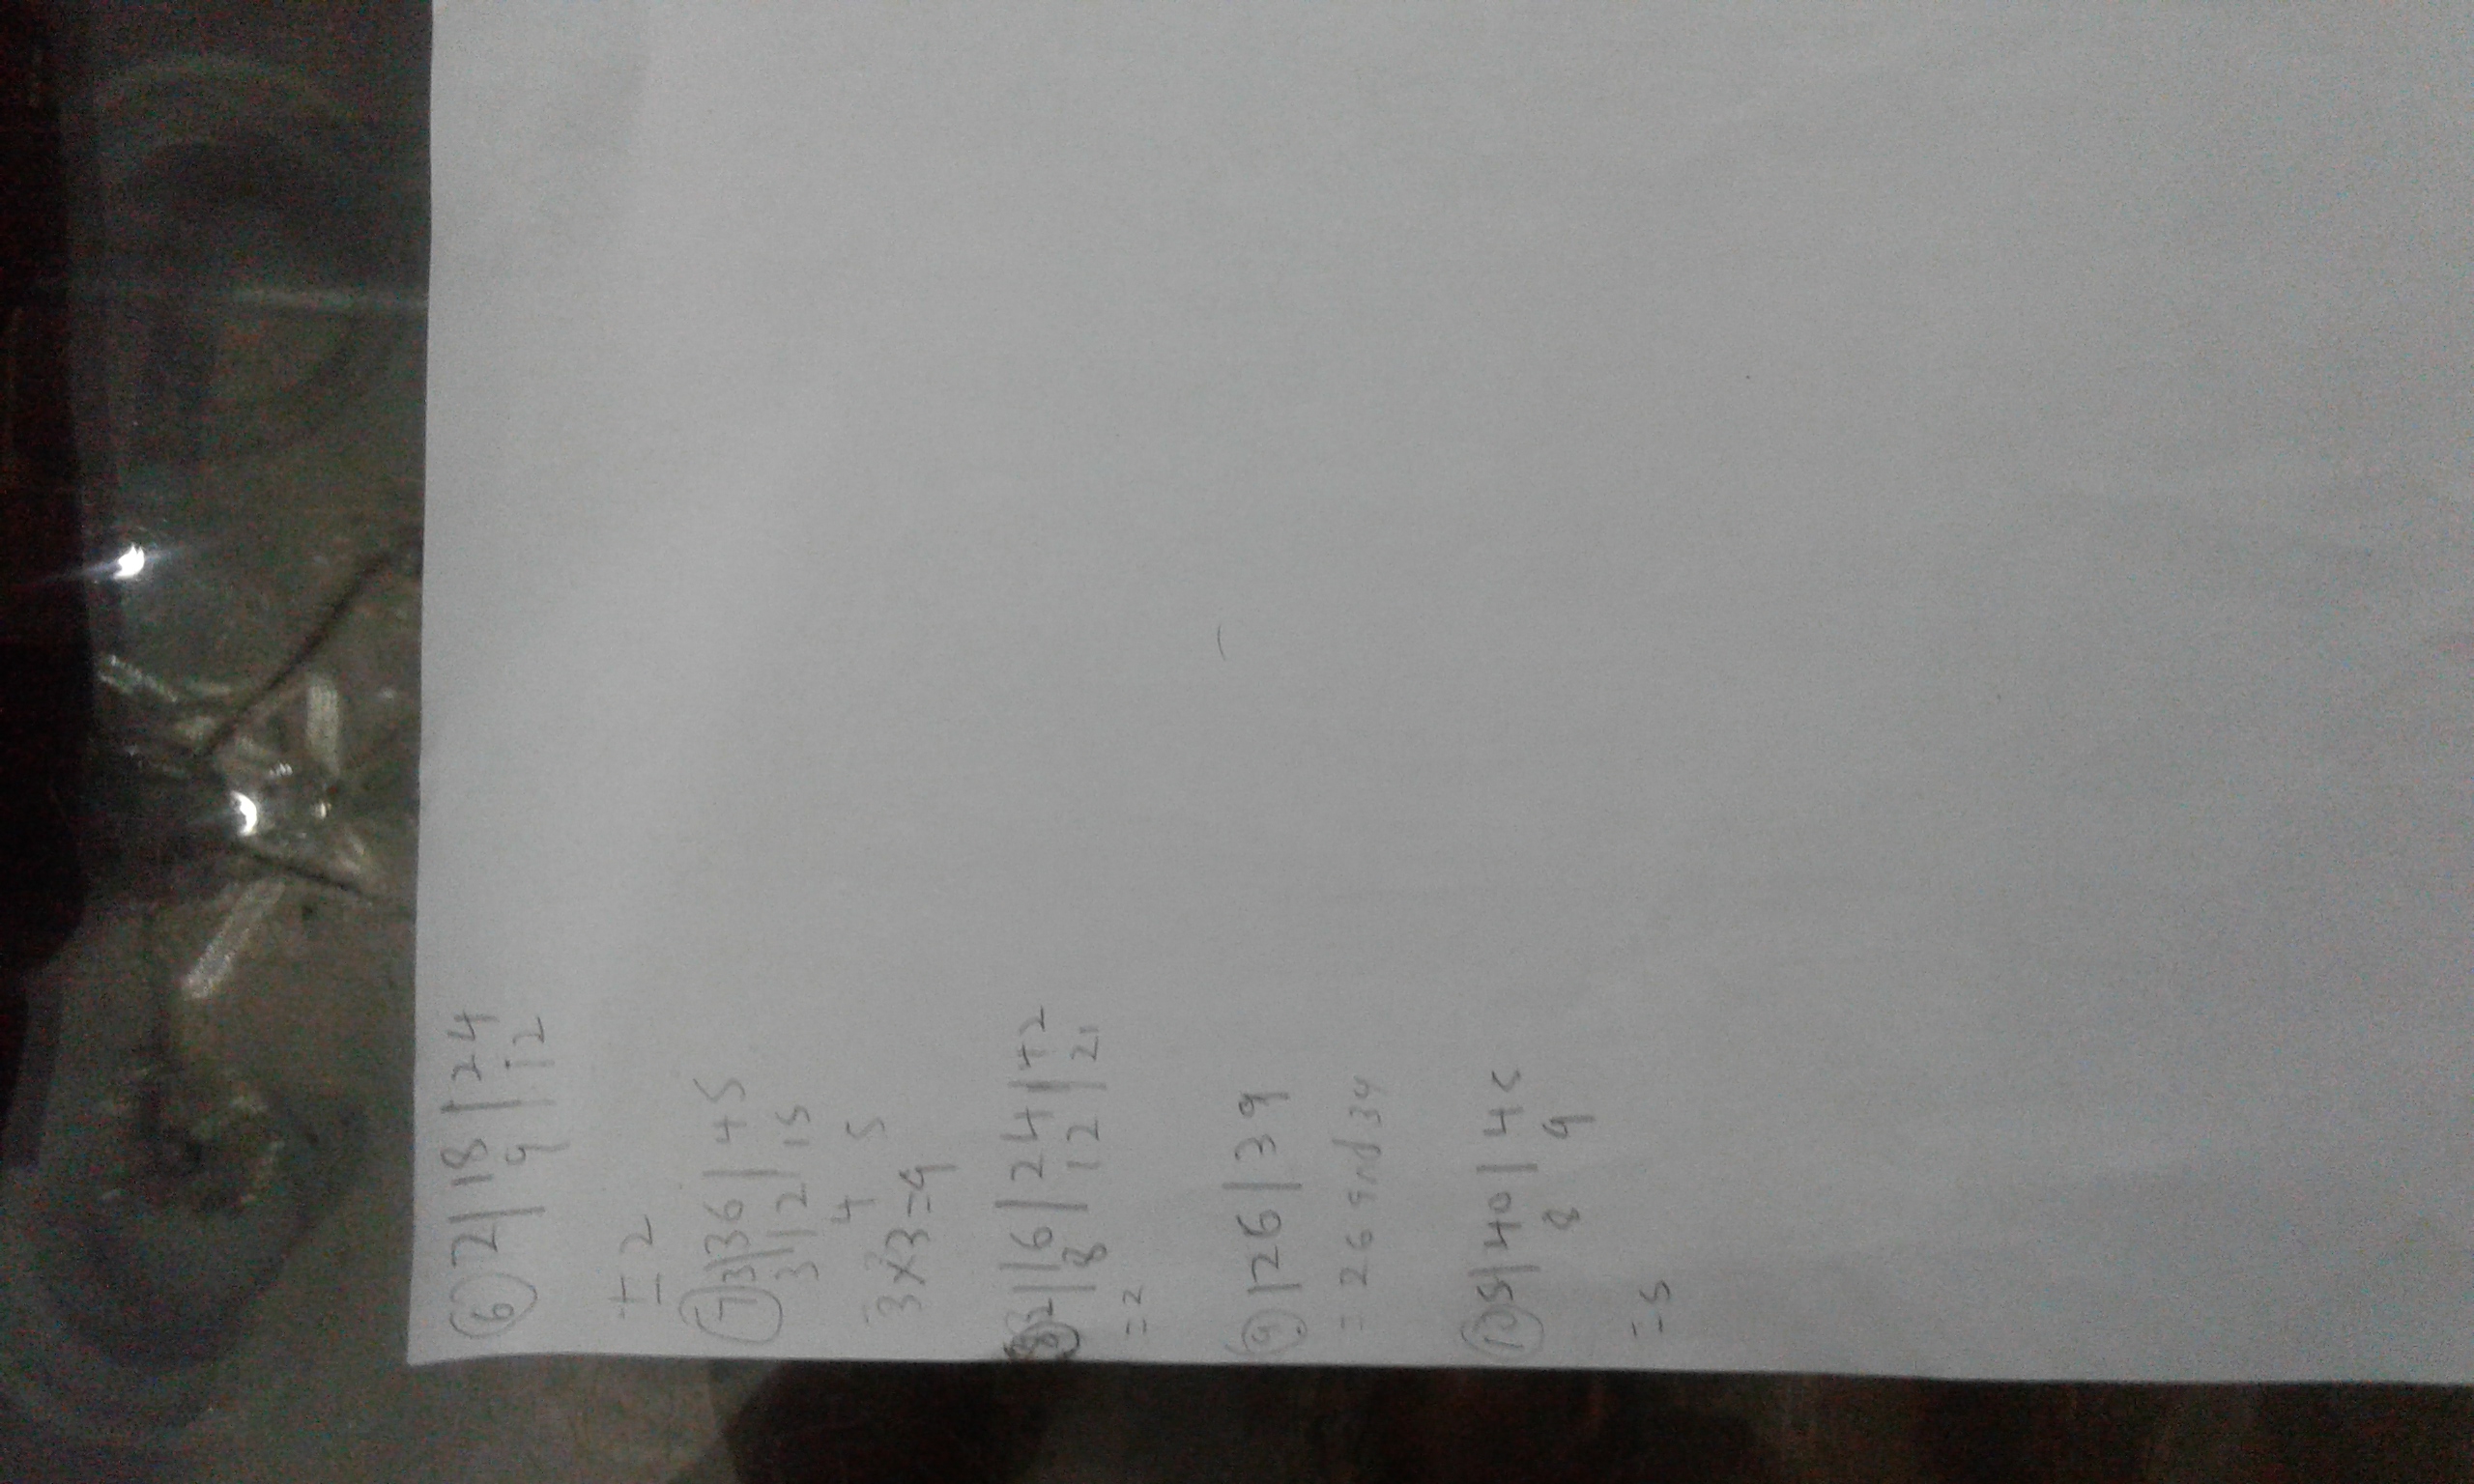 6 2 | 18 | 24
9 | 12
= 2
7 3 | 36 | 45
3 | 12 | 15
4 5
3 x 3 = 9
8 2 | 16 | 24 | 42
8 | 12 | 21
= 2
9 | 26 | 39
= 26 and 39
10 5 | 40 | 45
8 9
= 5